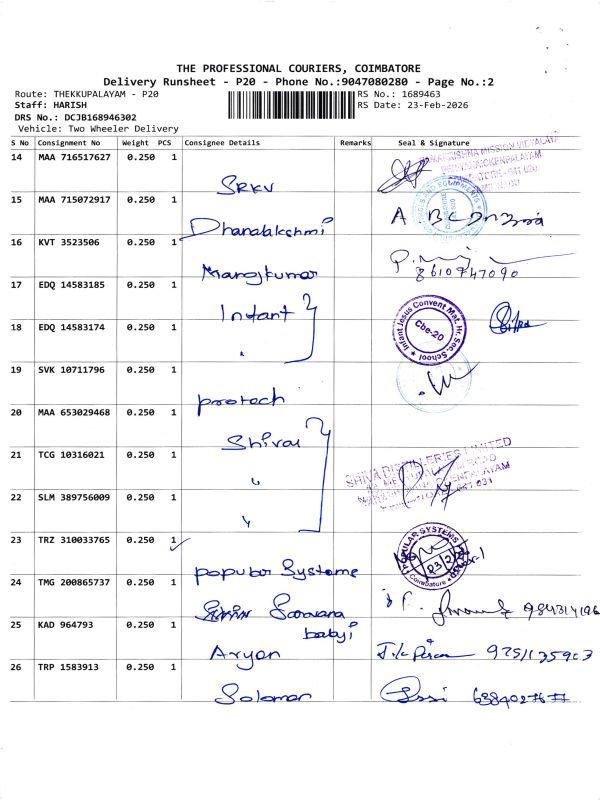 THE PROFESSIONAL COURIERS, COIMBATORE
Delivery Runsheet - P20 - Phone No.:9047080280 - Page No.:2
Route: THEKKUPALAYAM - P20 RS No.: 1689463
Staff: HARISH RS Date: 23-Feb-2026
DRS No.: DCJB168946302
Vehicle: Two Wheeler Delivery
S No Consignment No Weight PCS Consignee Details Remarks Seal & Signature
14 MAA 716517627 0.250 1
SRKV
15 MAA 715072917 0.250 1
Dhanalakshmi
16 KVT 3523506 0.250 1
Manojkumar 8610947090
17 EDQ 14583185 0.250 1
Infant
Infant Jesus Convent Mat. Hr. Sec. School
Cbe-20
18 EDQ 14583174 0.250 1
19 SVK 10711796 0.250 1
protech
20 MAA 653029468 0.250 1
Shivai
21 TCG 10316021 0.250 1
SHIVA DISTILLERIES LIMITED
22 SLM 389756009 0.250 1
23 TRZ 310033765 1
0.250
popular Systems
POPULAR SYSTEMS
Coimbatore
24 TMG 200865737 0.250 1
Saravana
25 KAD 964793 0.250 1
babyi
Aryan
26 TRP 1583913 0.250 1
Solomon